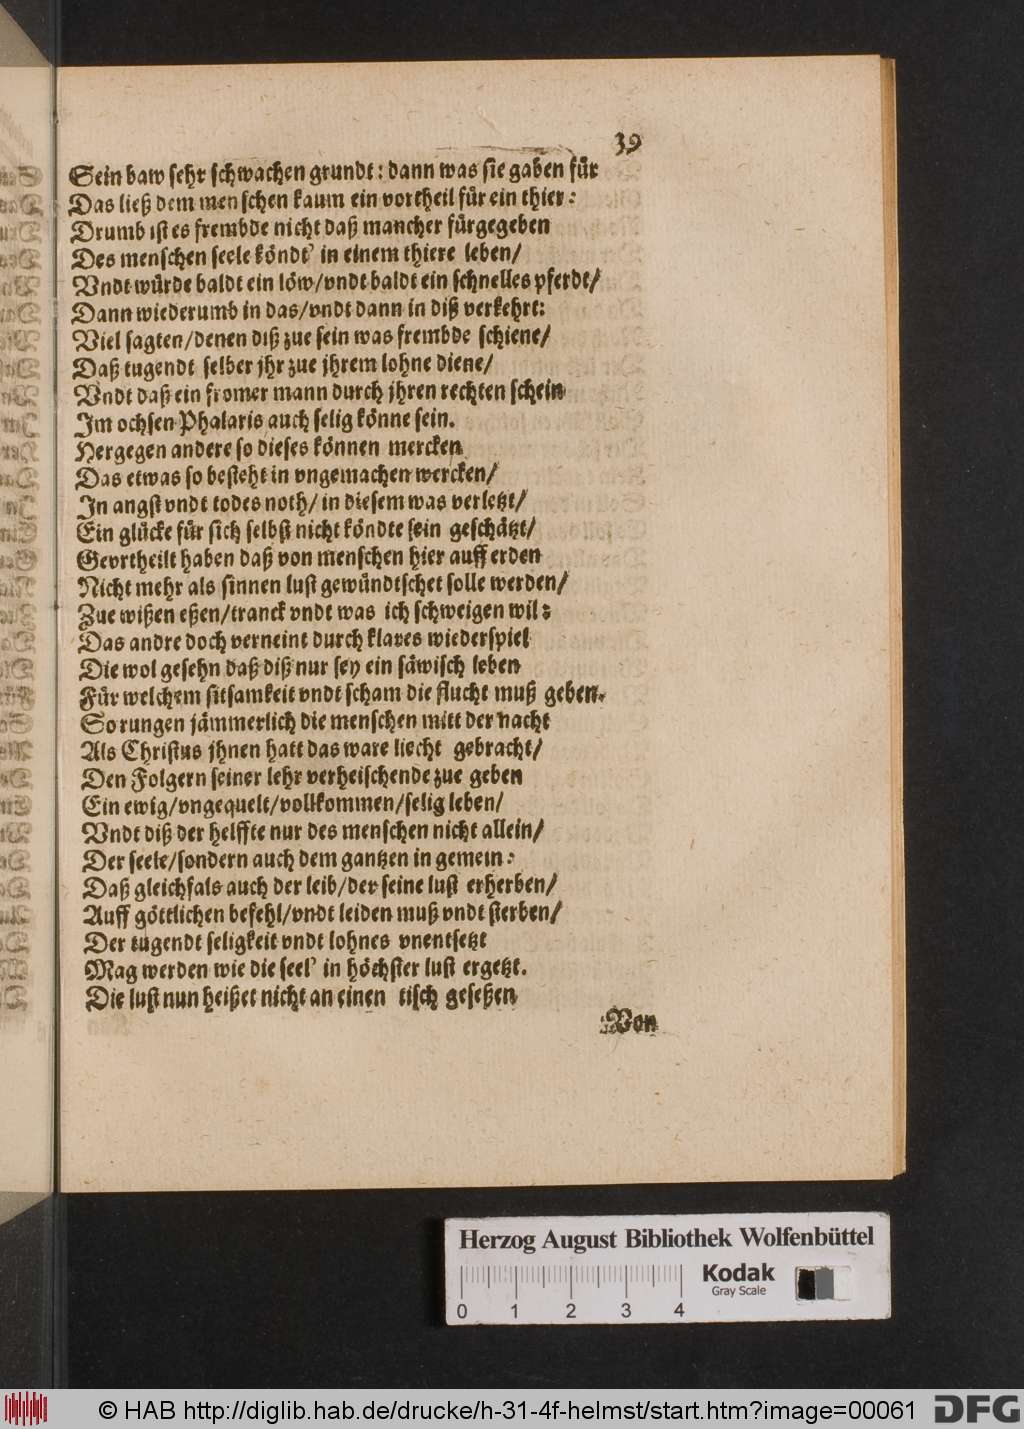 39
Sein baw sehr schwachen grundt: dann was sie gaben für
Das ließ dem menschen kaum ein vortheil für ein thier:
Drumb ist es frembde nicht daß mancher fürgegeben
Des menschen seele köndt' in einem thiere leben/
Vndt würde baldt ein löw/vndt baldt ein schnelles pferdt/
Dann wiederumb in das/vndt dann in diß verkehrt:
Viel sagten/denen diß zue sein was frembde schiene/
Daß tugendt selber jhr zue jhrem lohne diene/
Vndt daß ein fromer mann durch jhren rechten schein
Im ochsen Phalaris auch selig könne sein.
Hergegen andere so dieses können mercken
Das etwas so besteht in vngemachen wercken/
In angst vndt todes noth/ in diesem was verletzt/
Ein glücke für sich selbst nicht köndte sein geschätzt/
Gevrtheilt haben daß von menschen hier auff erden
Nicht mehr als sinnen lust gewündtschet solle werden/
Zue wißen eßen/tranck vndt was ich schweigen wil:
Das andre doch verneint durch klares wiederspiel
Die wol gesehn daß diß nur sey ein säwisch leben
Für welchem sitsamkeit vndt scham die flucht muß geben.
So rungen jämmerlich die menschen mitt der nacht
Als Christus jhnen hatt das ware liecht gebracht/
Den Folgern seiner lehr verheischende zue geben
Ein ewig/vngequelt/vollkommen/selig leben/
Vndt diß der helffte nur des menschen nicht allein/
Der seele/sondern auch dem gantzen in gemein:
Daß gleichfals auch der leib/der seine lust erherben/
Auff göttlichen befehl/vndt leiden muß vndt sterben/
Der tugendt seligkeit vndt lohnes vnentsetzt
Mag werden wie die seel' in höchster lust ergetzt.
Die lust nun heißet nicht an einen tisch geseßen
Von
Herzog August Bibliothek Wolfenbüttel
Kodak
Gray Scale
0 1 2 3 4
© HAB http://diglib.hab.de/drucke/h-31-4f-helmst/start.htm?image=00061
DFG